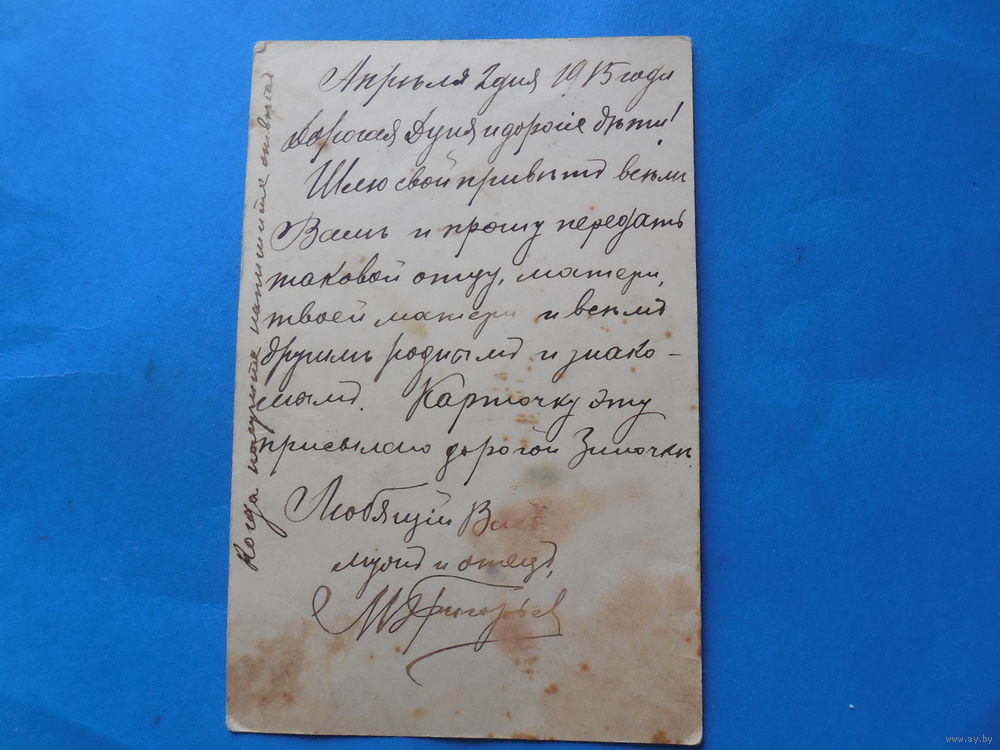 Апрѣля 2 дня 1915 года
Дорогая Дуня и дорогіе дѣти!
Шлю свой привѣтъ всѣмъ
Вамъ и прошу передать
таковой отцу, матери,
твоей матери и всѣмъ
другимъ роднымъ и знако-
мымъ. Карточку эту
присылаю дорогой Зиночки.
Любящій Васъ
мужъ и отецъ,
М Григорьев
Когда получите напишите отвѣтъ
www.ay.by